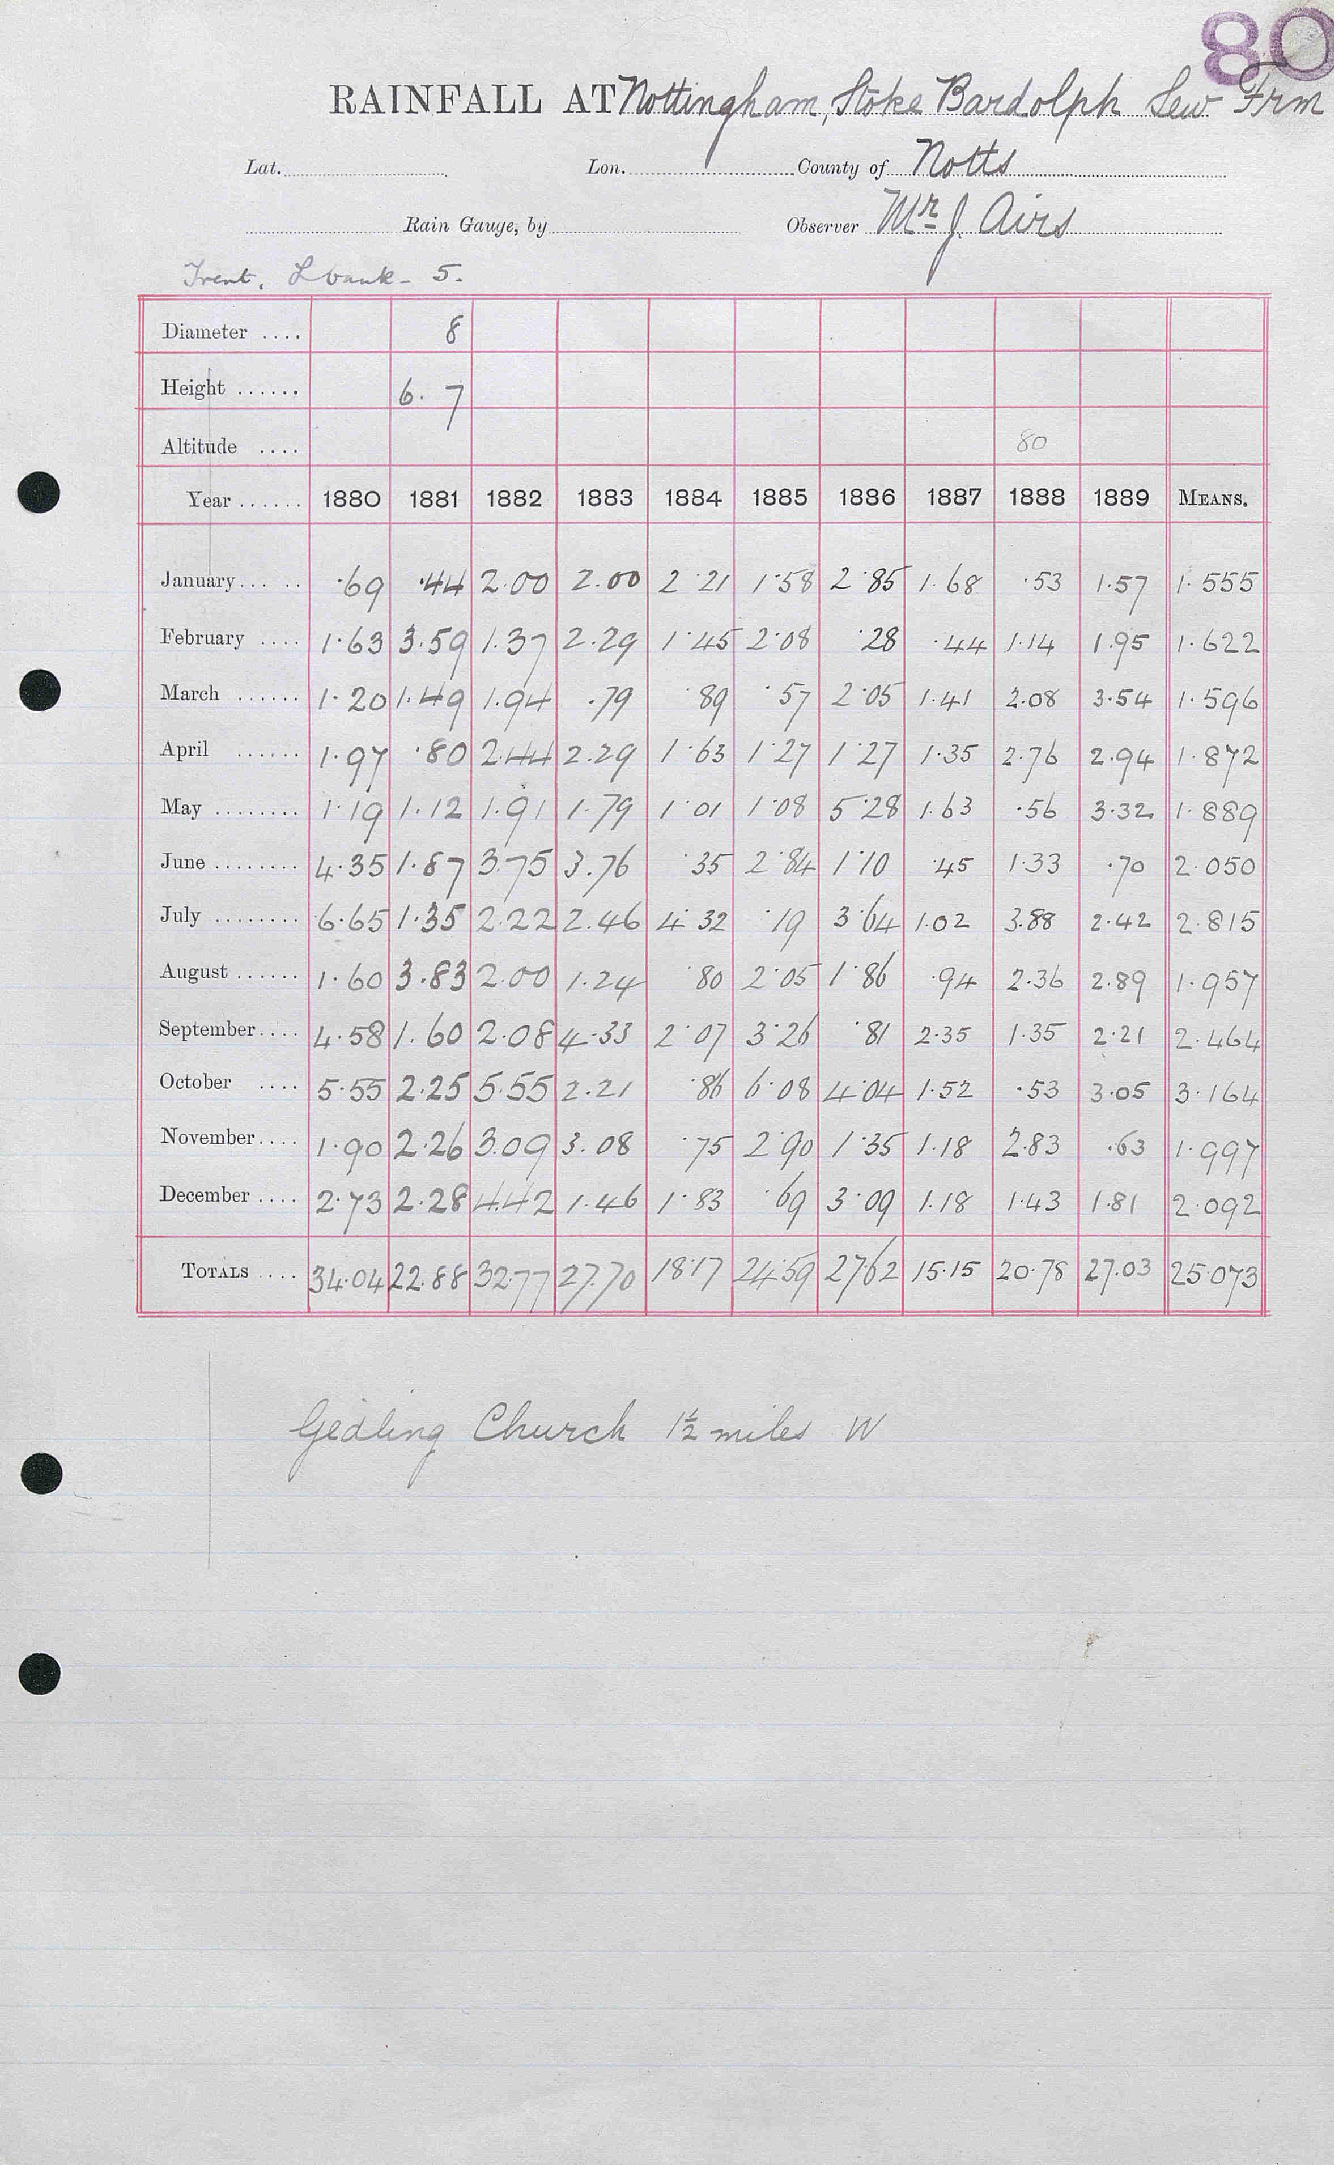 80
RAINFALL AT Nottingham, Stoke Bardolph Sew Frm
Lat. Lon. County of Notts
Rain Gauge, by Observer Mr J. Airs
Trent, L bank - 5.
Diameter .... 8
Height ...... 6. 7
Altitude .... 80
Year ...... 1880 1881 1882 1883 1884 1885 1886 1887 1888 1889 MEANS.
January ... .. ·69 ·44 2·00 2.00 2·21 1·58 2·85 1·68 ·53 1·57 1·555
February .... 1·63 3·59 1·37 2·29 1·45 2·08 ·28 ·44 1·14 1·95 1·622
March ...... 1·20 1·49 1·94 ·79 ·89 ·57 2·05 1·41 2·08 3·54 1·596
April ...... 1·97 ·80 2·44 2·29 1·63 1·27 1·27 1·35 2·76 2·94 1·872
May ........ 1·19 1·12 1·91 1·79 1·01 1·08 5·28 1·63 ·56 3·32 1·889
June ........ 4·35 1·87 3·75 3·76 ·35 2·84 1·10 ·45 1·33 ·70 2·050
July ........ 6·65 1·35 2·22 2·46 4·32 ·19 3·64 1·02 3·88 2·42 2·815
August ...... 1·60 3·83 2·00 1·24 ·80 2·05 1·86 ·94 2·36 2·89 1·957
September .... 4·58 1·60 2·08 4·33 2·07 3·26 ·81 2·35 1·35 2·21 2·464
October .... 5·55 2·25 5·55 2·21 ·86 6·08 4·04 1·52 ·53 3·05 3·164
November .... 1·90 2·26 3·09 3·08 ·75 2·90 1·35 1·18 2·83 ·63 1·997
December .... 2·73 2·28 4·42 1·46 1·83 ·69 3·09 1·18 1·43 1·81 2·092
TOTALS .... 34·04 22·88 32·77 27·70 18·17 24·59 27·62 15·15 20·78 27·03 25·073
Gedling Church 1½ miles W